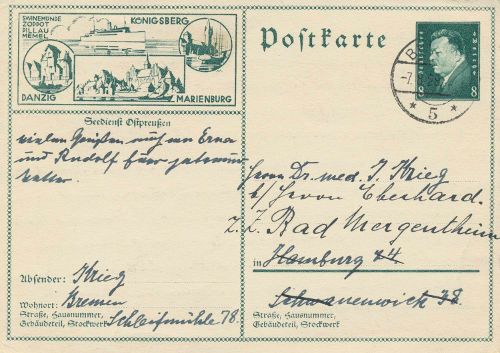 SWINEMÜNDE
ZOPPOT
PILLAU
MEMEL
KÖNIGSBERG
DANZIG
MARIENBURG
Seedienst Ostpreußen
Postkarte
8 8
5
vielen Grüßen auch von Erna
und Rudolf
Absender: Krieg
Wohnort: Bremen
Straße, Hausnummer,
Gebäudeteil, Stockwerk Schleifmühle 78
Herrn Dr. med. J. Krieg
b/ Herrn Eberhard.
z. Z. Bad Mergentheim
in Hamburg 24
Schwanenwick 38.
Straße, Hausnummer,
Gebäudeteil, Stockwerk